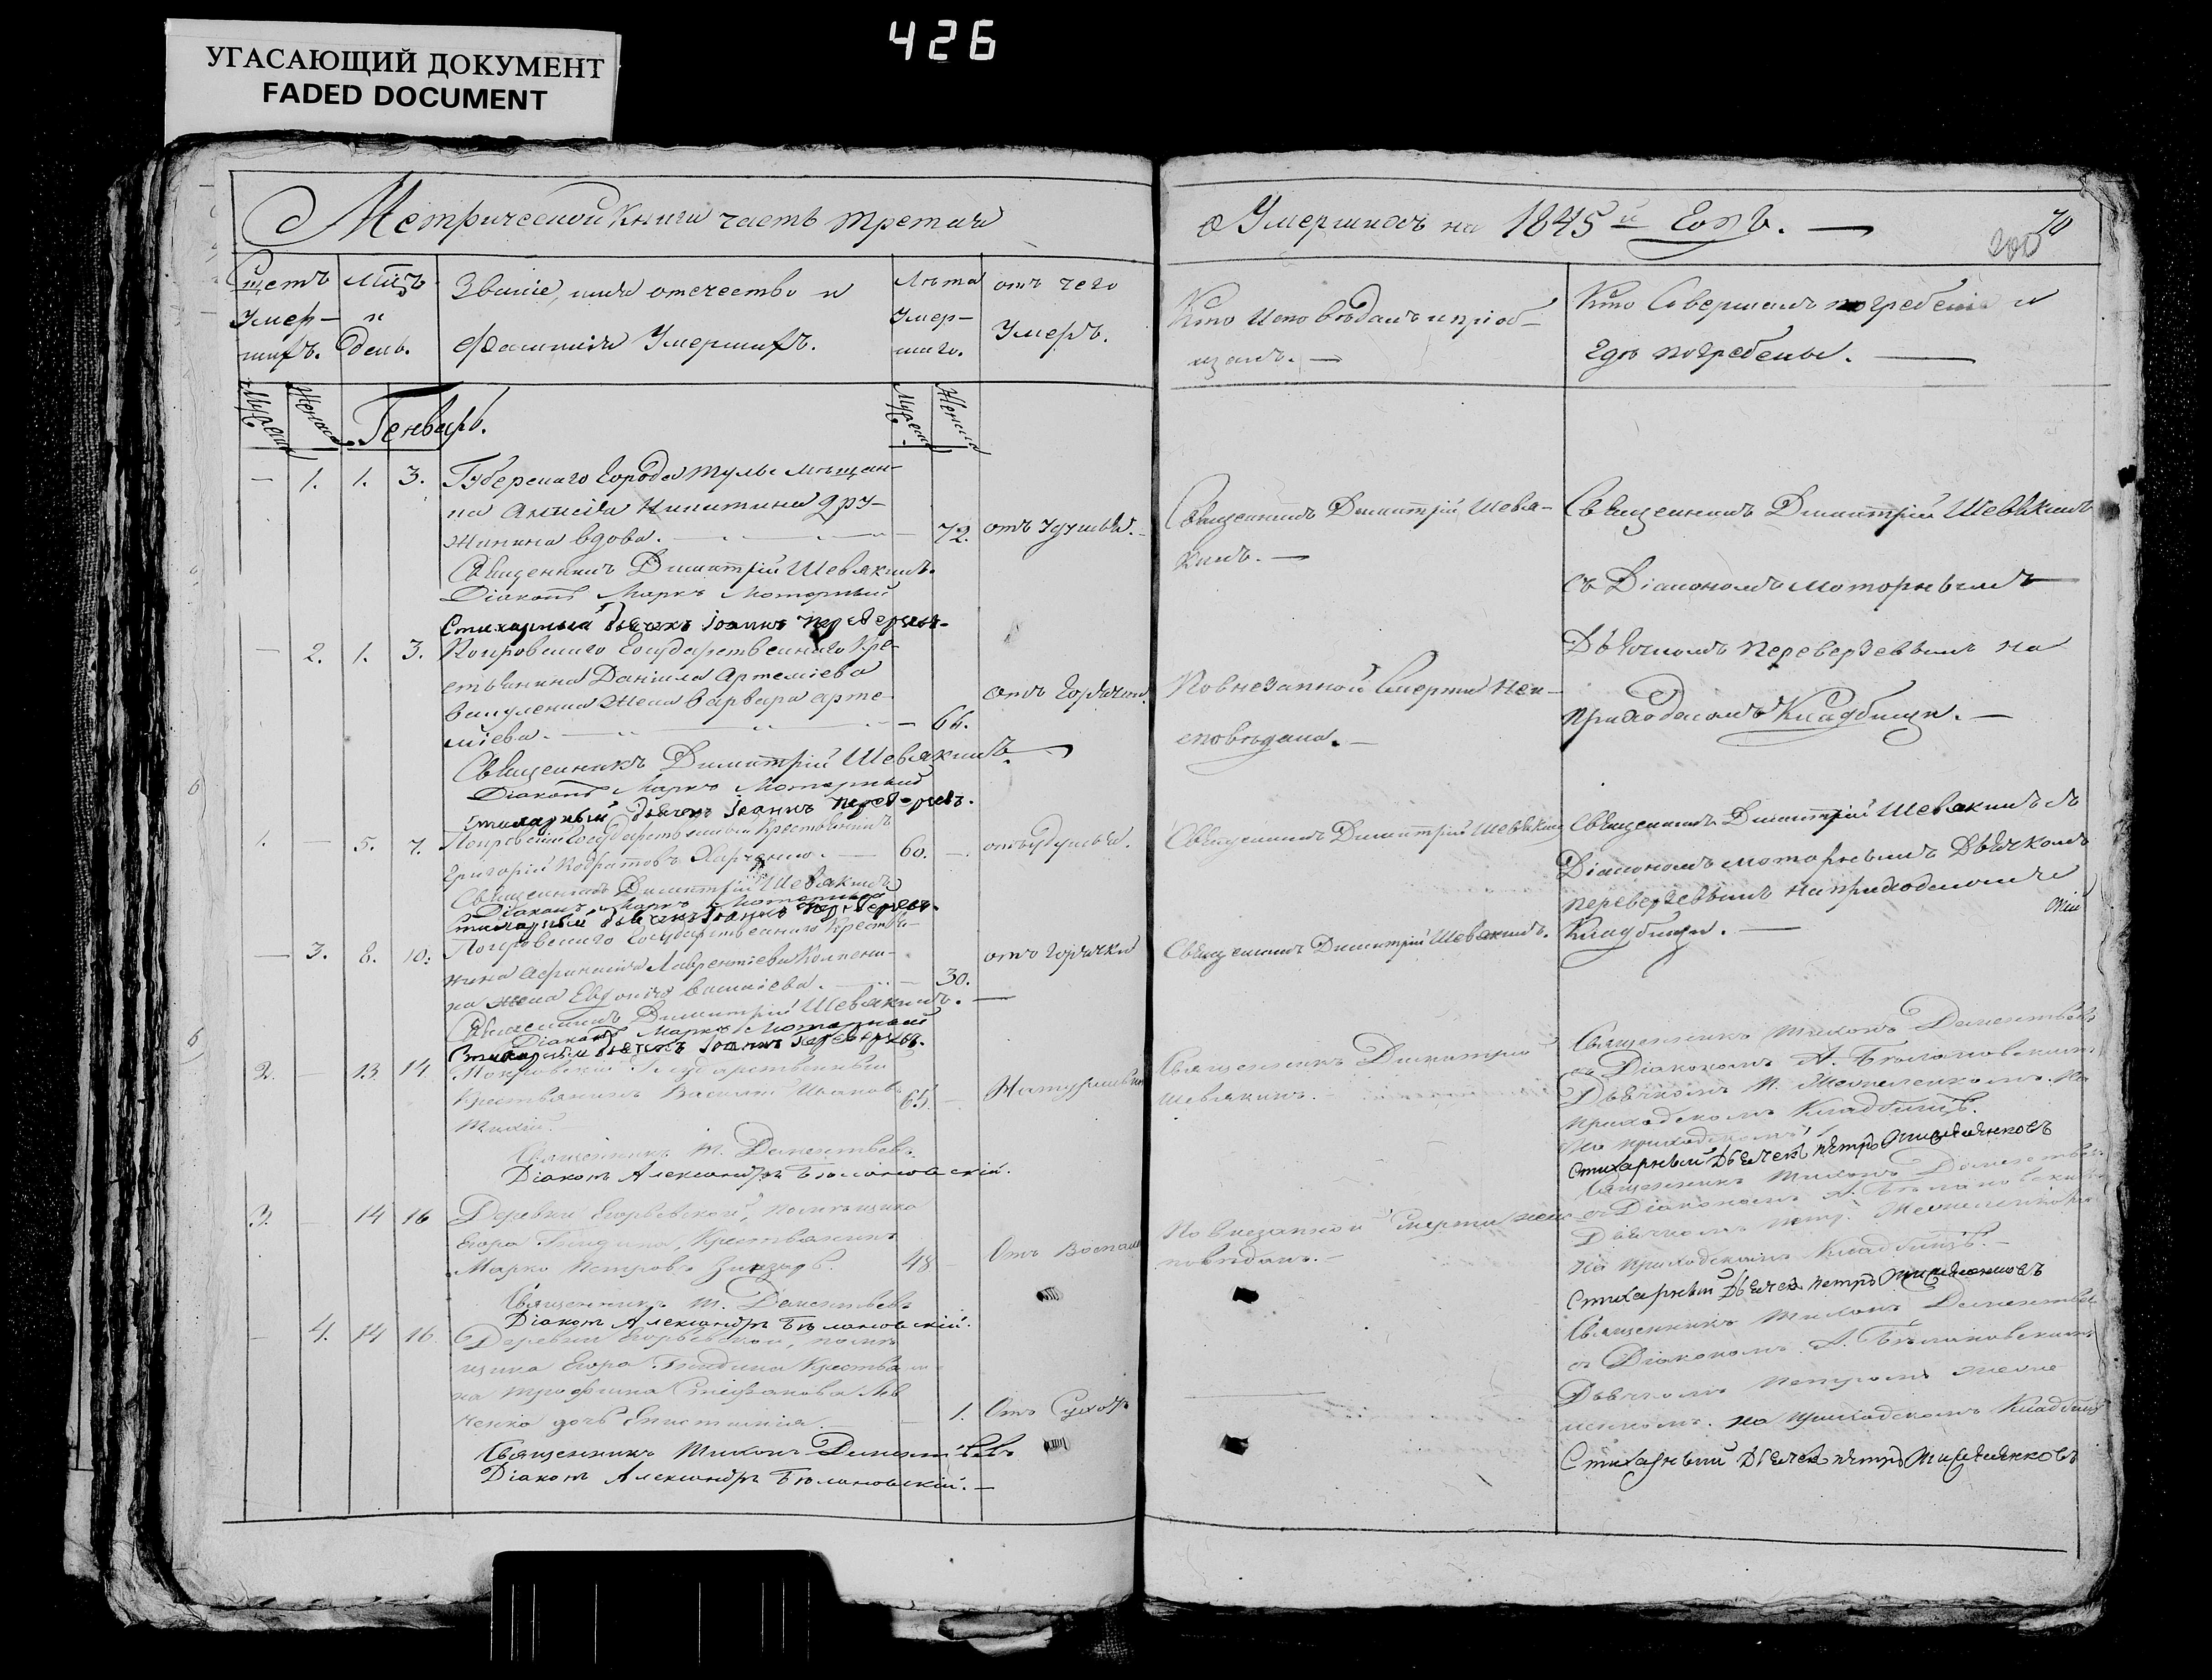 426
УГАСАЮЩИЙ ДОКУМЕНТ
FADED DOCUMENT
Метрической книги часть третия
о Умершихъ на 1845й Годъ. —
70
Счетъ Умер-шихъ.
Мцъ и день.
Званіе, имя отечество и
фамилія Умершихъ.
Лѣта Умер-шаго.
отъ чего
Умеръ.
Кто исповѣдалъ и пріоб-
щалъ. —
Кто Совершалъ погребеніе и
гдѣ погребены. —
Генварь.
— 1. 1. 3. Губерскаго Города Тулы мѣщан-
на Никитина
вдова. — 72. отъ удушья. —
Священникъ Димитрій Шевякинъ.
Діаконъ Маркъ Моторный
Стихарный дьячекъ Іоаннъ
Священникъ Димитрій Шевя-
кинъ. —
Священникъ Димитрій Шевякинъ
съ Діакономъ Моторнымъ
Дьячкомъ Переверзевымъ на
приходскомъ Кладбищи. —
— 2. 1. 3. Покровскаго Государственнаго Кре-
стьянина Даніила Артеміева
жена Варвара Арте-
міева. — 66. отъ Горячки.
Священникъ Димитрій Шевякинъ. —
Діаконъ Маркъ Моторный
Стихарный дьячекъ Іоаннъ
По внезапной Смерти Неи-
сповѣдана. —
1. — 5. 7. Покровскій Государственный Крестьянинъ
Григорій Харченко. — 60. — отъ удушья.
Священникъ Димитрій Шевякинъ
Діаконъ Маркъ Моторный
Стихарный дьячекъ Іоаннъ
Священникъ Димитрій Шевякинъ
Священникъ Димитрій Шевякинъ съ
Діакономъ Моторнымъ Дьячкомъ
Переверзевымъ на приходскомъ
Кладбищи. —
— 3. 8. 10. Покровскаго Государственнаго Крестья-
нина Лаврентіева
жена Васильева. — 30. отъ Горячки
Священникъ Димитрій Шевякинъ. —
Діаконъ Маркъ Моторный
Стихарный дьячекъ Іоаннъ
Священникъ Димитрій Шевякинъ.
2. — 13. 14. Покровскій Государственный
Крестьянинъ Василій Ивановъ
65. —
Священникъ Т. Дементьевъ
Діаконъ Александръ Бѣлановскій.
Священникъ Димитрій
Шевякинъ. —
Священникъ Тихонъ Дементьевъ
съ Діакономъ А. Бѣлановскимъ
Дьячкомъ П. на
приходскомъ Кладбищѣ.
на приходскомъ
Стихарный Дьячекъ Петръ
3. — 14 16 Деревни Егорьевской, помѣщика
Егора Крестьянинъ
Марко Петровъ 48 — Отъ
Священникъ Т. Дементьевъ
Діаконъ Александръ Бѣлановскій.
По внезапной Смерти неис-
повѣданъ. —
Священникъ Тихонъ Дементьевъ
съ Діакономъ А. Бѣлановскимъ
Дьячкомъ
на Приходскомъ Кладбищѣ. —
Стихарный Дьячекъ Петръ
— 4. 14 16. Деревни Егорьевской, помѣ-
щика Егора Крестьяни-
на Трофима Стефанова
дочь — 1. Отъ
Священникъ Тихонъ Дементьевъ
Діаконъ Александръ Бѣлановскій. —
Священникъ Тихонъ Дементьевъ
съ Діакономъ А. Бѣлановскимъ
Дьячкомъ Петромъ
на приходскомъ Кладбищѣ
Стихарный Дьячекъ Петръ